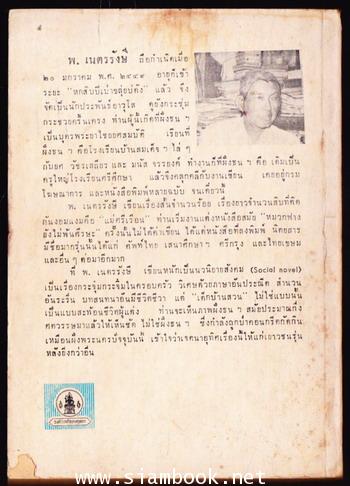 พ. เนตรรังษี ถือกำเนิดเมื่อ
๒๐ มกราคม พ.ศ. ๒๔๔๙ อายุก็เข้า
ระยะ "หกสิบปีเบ่าลุ่ยบ่ดัง" แล้ว จึง
จัดเป็นนักประพันธ์อาวุโส ดูยังกระชุ่ม
กระชวยครื้นเครง ท่านผู้นี้เกิดที่ฝั่งธนฯ
เป็นบุตรพระยาไชยยศสมบัติ เรียนที่
ฝั่งธนฯ คือโรงเรียนบ้านสมเด็จฯ ไล่ ๆ
กับยศ วัชรเสถียร และ มนัส จรรยงค์ ทำงานก็ที่ฝั่งธนฯ คือ เดิมเป็น
ครูใหญ่โรงเรียนศรีศึกษา แล้วจึงคลุกคลีกับงานเขียน เคยอยู่กรม
โฆษณาการ และหนังสือพิมพ์หลายฉบับ จนเดี๋ยวนี้
พ. เนตรรังษี เขียนเรื่องสั้นจำนวนร้อย เรื่องยาวจำนวนสิบที่ติด
กันงอมแงมคือ "แม่ศรีเรือน" ท่านเริ่มงานแต่งหนังสือสมัย "หมวกฟาง
ยังไม่พ้นศีรษะ" ครั้งนั้นไม่ได้ค่าเขียน ได้แต่หนังสือที่ลงพิมพ์ นิตยสาร
มีชื่อมากรุ่นนั้นได้แก่ ศัพท์ไทย เสนาศึกษาฯ ศรีกรุง และไทยเขษม
และอื่น ๆ ต่อมาอีกมาก
ที่ พ. เนตรรังษี เขียนหนักเป็นนวนิยายสังคม (Social novel)
เป็นเรื่องกระจุ๋มกระจิ๋มในครอบครัว วิเศษด้วยภาษาอันประณีต สำนวน
อันระรื่น บทสนทนาอันมีชีวิตชีวา แต่ "เด็กบ้านสวน" ไม่ใช่แบบนั้น
เป็นแบบสะท้อนชีวิตผู้แต่ง ท่านจะเห็นภาพฝั่งธนฯ สมัยประมาณกึ่ง
ศตวรรษมาแล้วให้เห็นชัด ไม่ใช่ฝั่งธนฯ ซึ่งกำลังถูกป่าคอนกรีตกัดกิน
เหมือนฝั่งพระนครปัจจุบันนี้ เข้าใจว่าเจตนาอุทิศเรื่องนี้ให้แก่เยาวชนรุ่น
หลังยิ่งกว่าอื่น
www.siambook.net